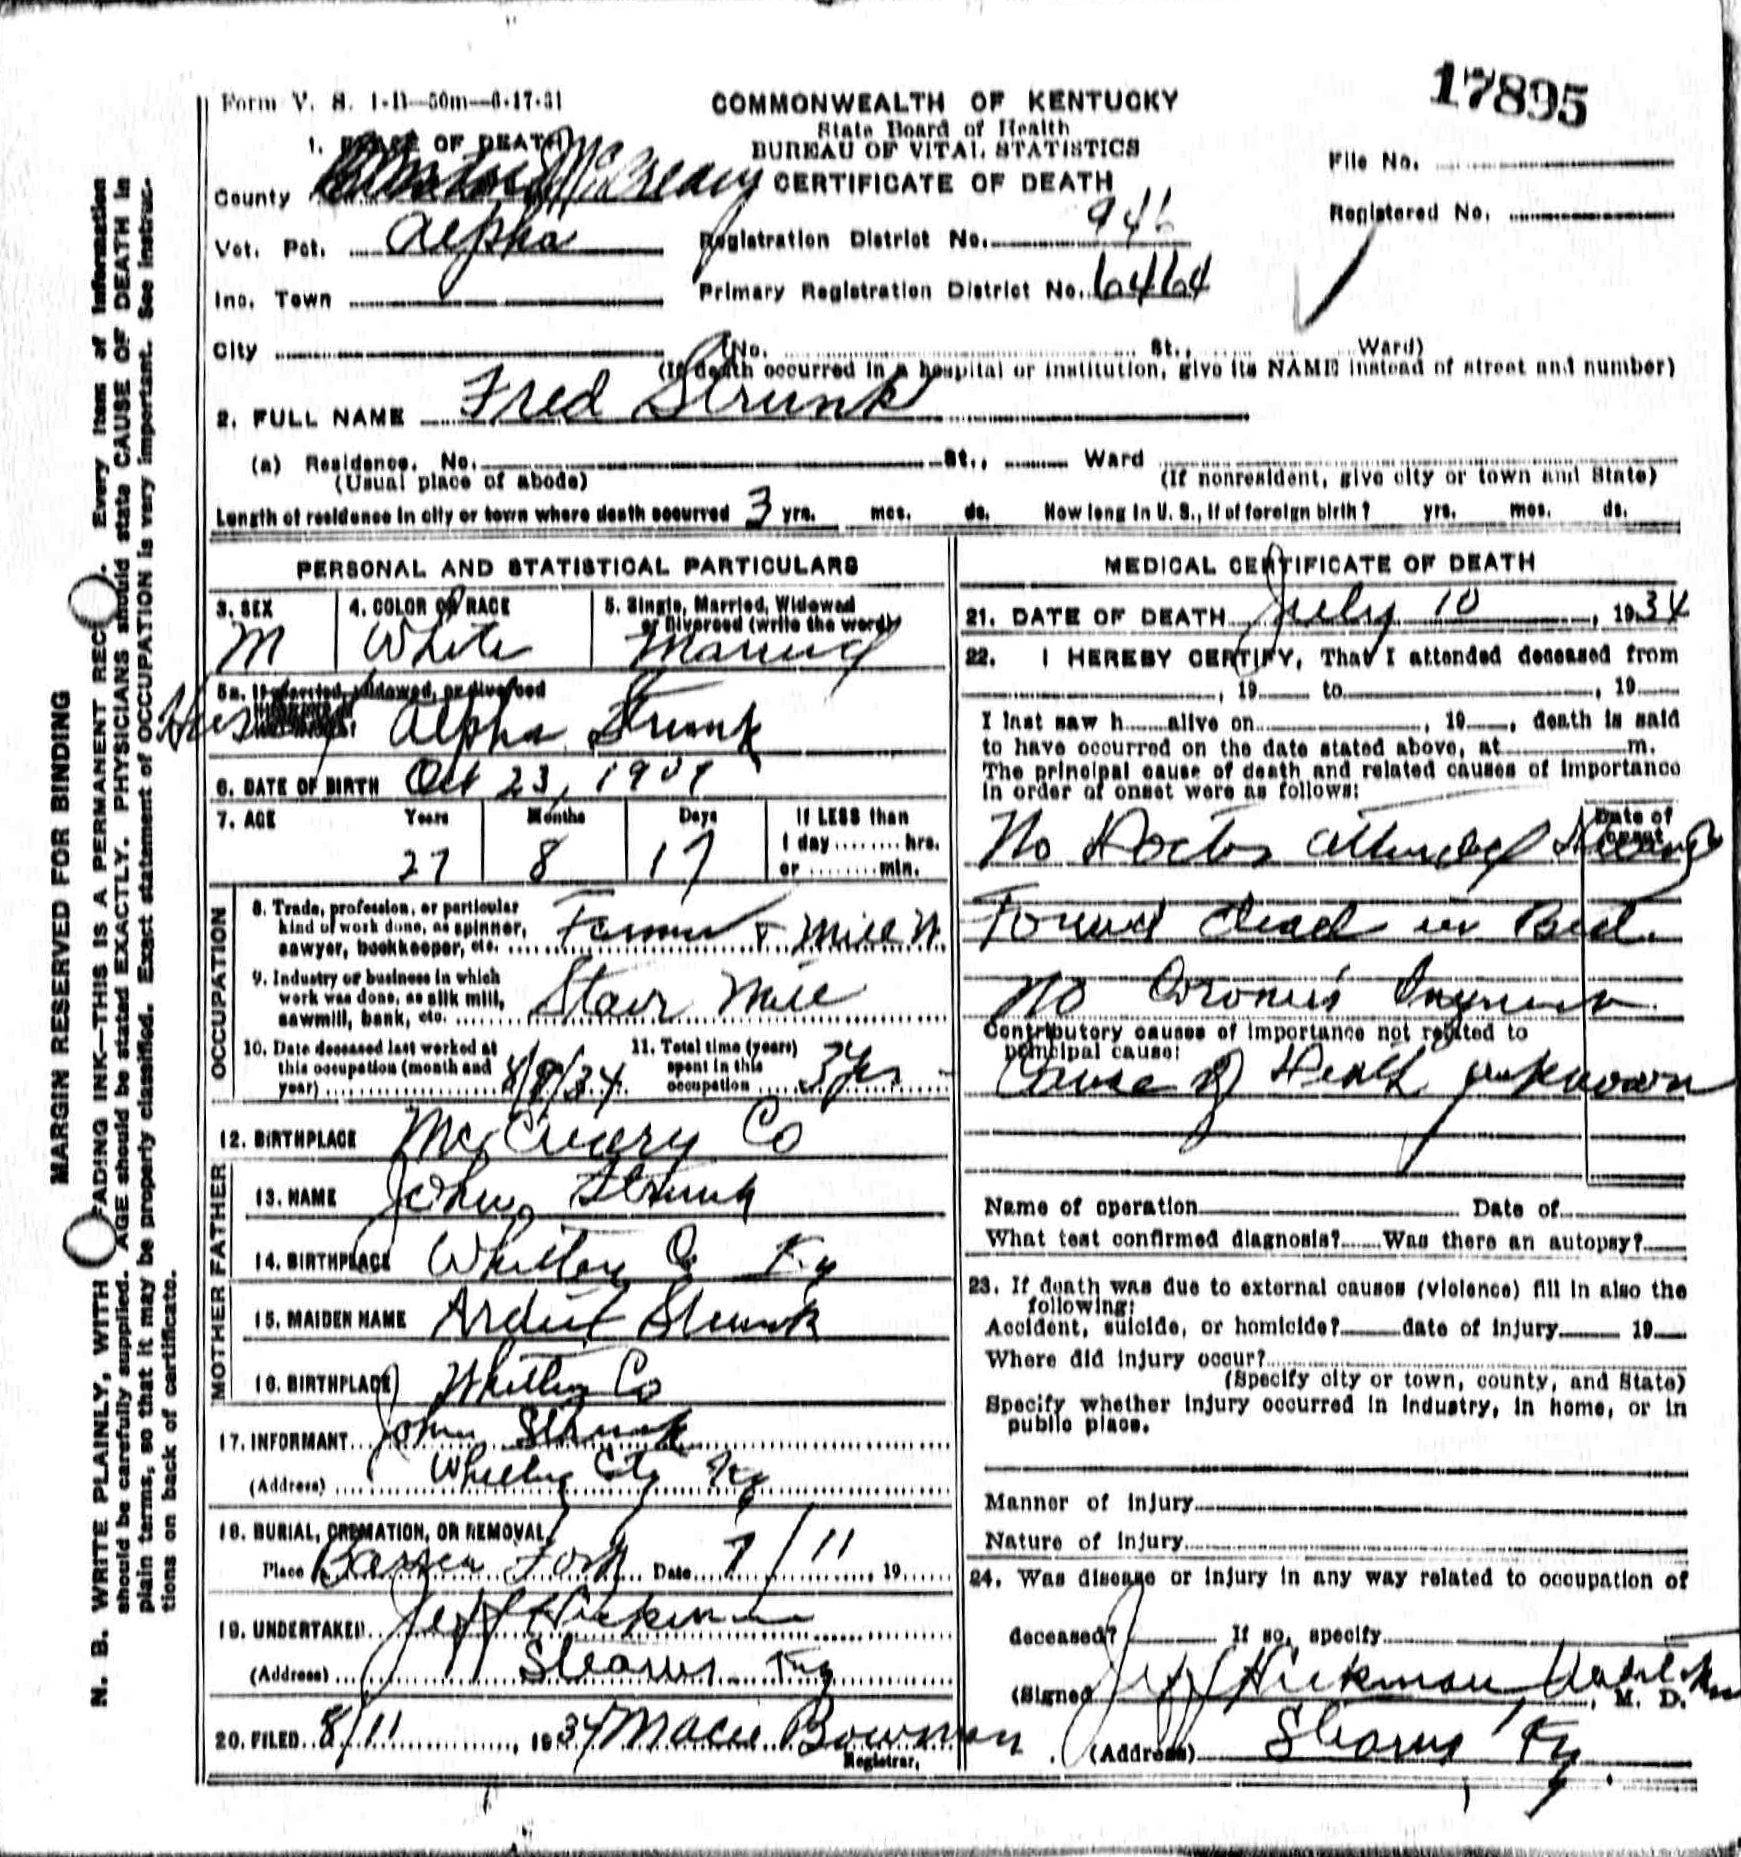 17895
Form V. S. 1-D—50m—6-17-31
COMMONWEALTH OF KENTUCKY
State Board of Health
BUREAU OF VITAL STATISTICS
CERTIFICATE OF DEATH
File No.
Registered No.
1. PLACE OF DEATH
County McCreary
Vot. Pct. Alpha
Registration District No. 946
Inc. Town
Primary Registration District No. 6464
City (No. St., Ward)
(If death occurred in a hospital or institution, give its NAME instead of street and number)
2. FULL NAME Fred Strunk
(a) Residence. No. St., Ward
(Usual place of abode) (If nonresident, give city or town and State)
Length of residence in city or town where death occurred 3 yrs. mos. ds. How long in U. S., if of foreign birth? yrs. mos. ds.
PERSONAL AND STATISTICAL PARTICULARS
3. SEX 4. COLOR OR RACE 5. Single, Married, Widowed
or Divorced (write the word)
M White Married
5a. If married, widowed, or divorced
Alpha Strunk
6. DATE OF BIRTH Oct 23,
7. AGE Years Months Days If LESS than
1 day ........ hrs.
or ........ min.
27 8 17
OCCUPATION
8. Trade, profession, or particular
kind of work done, as spinner,
sawyer, bookkeeper, etc. Farmer + Mill W
9. Industry or business in which
work was done, as silk mill,
sawmill, bank, etc. Stave Mill
10. Date deceased last worked at
this occupation (month and
year)
11. Total time (years)
spent in this
occupation 3 yrs
12. BIRTHPLACE McCreary Co
FATHER
13. NAME John Strunk
14. BIRTHPLACE Whitley Co Ky
MOTHER
15. MAIDEN NAME Strunk
16. BIRTHPLACE Whitley Co
17. INFORMANT John Strunk
(Address) Whitley City Ky
18. BURIAL, CREMATION, OR REMOVAL
Place Fork Date 7/11, 19
19. UNDERTAKER Jeff Hickman
(Address) Stearns Ky
20. FILED 8/11, 1934 Macie Bowman
Registrar.
MEDICAL CERTIFICATE OF DEATH
21. DATE OF DEATH July 10, 1934
22. I HEREBY CERTIFY, That I attended deceased from
, 19 to , 19
I last saw h alive on , 19 , death is said
to have occurred on the date stated above, at m.
The principal cause of death and related causes of importance
in order of onset were as follows:
Date of
onset
No Doctor attended
Found dead in Bed.
No Coroner's
Contributory causes of importance not related to
principal cause:
Cause of Death unknown
Name of operation Date of
What test confirmed diagnosis? Was there an autopsy?
23. If death was due to external causes (violence) fill in also the
following:
Accident, suicide, or homicide? date of injury 19
Where did injury occur?
(Specify city or town, county, and State)
Specify whether injury occurred in industry, in home, or in
public place.
Manner of injury
Nature of injury
24. Was disease or injury in any way related to occupation of
deceased? If so, specify
(Signed Jeff Hickman , M. D.
(Address) Stearns Ky
MARGIN RESERVED FOR BINDING
N. B. WRITE PLAINLY, WITH FADING INK—THIS IS A PERMANENT REC. Every item of information
should be carefully supplied. AGE should be stated EXACTLY. PHYSICIANS should state CAUSE OF DEATH in
plain terms, so that it may be properly classified. Exact statement of OCCUPATION is very important. See instruc-
tions on back of certificate.